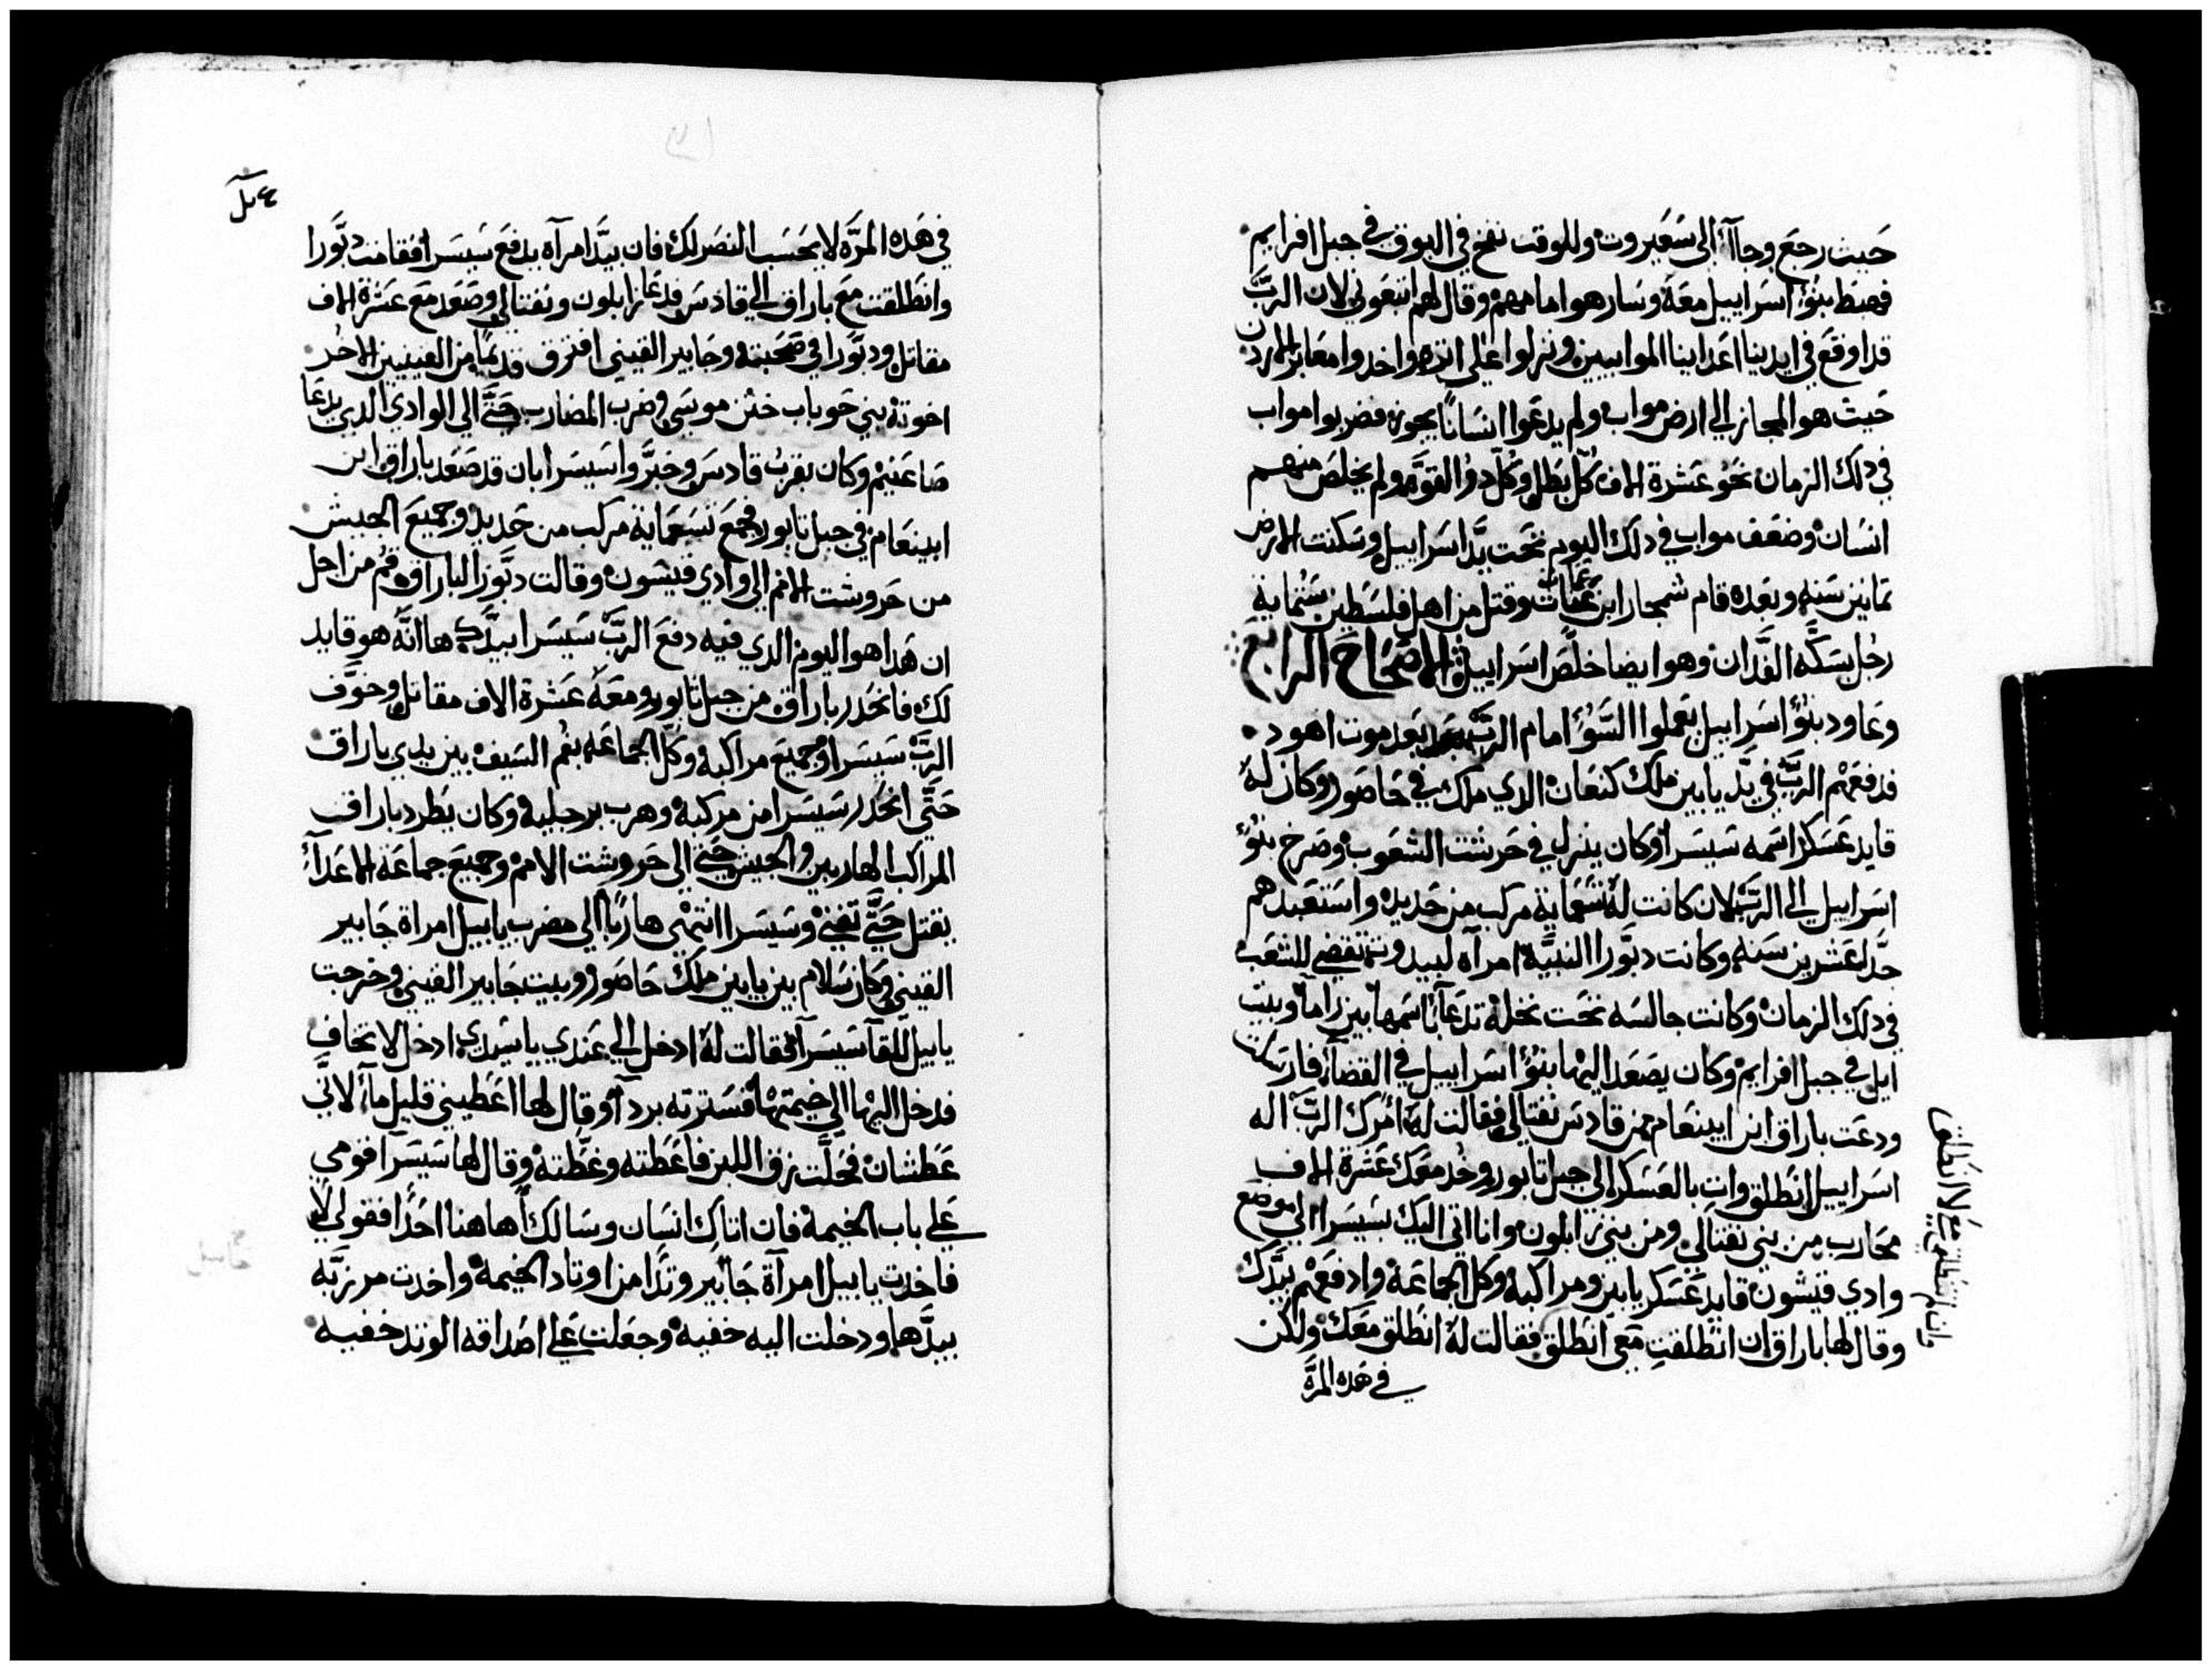 حيث رجع وجاآ الى سعيروت وللوقت نفخ في البوق في جبل افرايم
فهبط بنو اسراييل معه وسار هو امامهم وقال لهم اتبعوني لان الرب
قد اوقع في ايدينا اعداينا الموابيين ونزلوا على اثره واخدوا معابر الاردن
حيث هو المجاز الي ارض مواب ولم يدعوا انسانا يجوز فضربوا مواب
في دلك الزمان نحو عشرة الاف كل بطل وكل دو القوه ولم يخلص منهم
انسان وضعف مواب في دلك اليوم تحت يد اسراييل وسكنت الارض
تمانين سنه وبعده قام شمجار ابن عنات وقتل من اهل فلسطين ستماية
رجل بسكه الفدان وهو ايضا خلص اسراييل الاصحاح الرابع
وعاود بنو اسراييل يعملوا السو امام الرب بعد موت اهود
فدفعهم الرب في يد يابين ملك كنعان الدي ملك في حاصور وكان له
قايد عسكر اسمه سيسرا وكان ينزل في حرشت الشعوب وصرخ بنو
اسراييل الي الرب لان كانت له تسعماية مركب من حديد واستعبدهم
جدا عشرين سنه وكانت دبورا النبيه امراه لبيدوت تقضي للشعب
في دلك الزمان وكانت جالسه تحت نخلة تدعا باسمها بين راما وبيت
ايل في جبل افرايم وكان يصعد اليها بنو اسراييل في القضا فارسلت
ودعت باراق ابن ابينعام من قادس نفتالي فقالت له امرك الرب اله
اسراييل انطلق وات بالعسكر الي جبل تابور وخد معك عشرة الاف
محارب من بني نفتالي ومن بني زابلون وانا اتي اليك بسيسرا الى موضع
وادي قيشون قايد عسكر يابين ومراكبه وكل الجماعة وادفعهم بيدك
وقال لها باراق ان انطلقت معي انطلق فقالت له انطلق معك ولكن
في هده المرة
وان لم تنطلقي معي لا انطلق
في هده المره لا يحسب النصر لك فان بيد امرآه يدفع سيسرا فقامت دبورا
وانطلقت مع باراق الي قادس فدعا زابلون ونفتالي وصعد مع عشرة الاف
مقاتل ودبورا في صحبته وحابير القيني افترق قديما من القينيين الاخر
اخوته بني حوباب ختن موسى وضرب المضارب حتى الي الوادي الدي يدعا
صاعنيم وكان بقرب قادس وخبروا سيسرا بان قد صعد باراق ابن
ابينعام في جبل تابور فجمع تسعماية مركب من حديد وجميع الجيش
من حروشت الامم الى وادي قيشون وقالت دبورا لباراق قم من اجل
ان هدا هو اليوم الدي فيه دفع الرب سيسرا بيدك ها انه هو قايد
لك فانحدر باراق من جبل تابور ومعه عشرة الاف مقاتل وخوف
الرب سيسرا وجميع مراكبه وكل الجماعه بفم السيف بين يدي باراق
حتى انحدر سيسرا من مركبه وهرب برجليه وكان يطرد باراق
المراكب الهاربين والجيش حتى الى حروشت الامم وجميع جماعة الاعدآ
يقتل حتى تفني وسيسرا انتهي هاربا الي مضرب ياييل امراة حابير
القيني وكان سلام بين يابين ملك حاصور وبيت حابير القيني وخرجت
ياييل للقآ سيسرآ فقالت له ادخل الي عندي ياسيدي ادخل لا تخاف
فدخل اليها الي خيمتها فسترته بردآ وقال لها اعطيني قليل مآ لاني
عطشان فحلت زق اللبن فاعطته وغطته وقال لها سيسرآ قومي
علي باب الخيمة فان اتاك انسان وسالك اهاهنا احدا فقولي لا
فاخدت ياييل امرآة حابير وتدا من اوتاد الخيمة واخدت مرزبه
بيدها ودخلت اليه خفيه وجعلت علي اصداقه الوتد خفيه